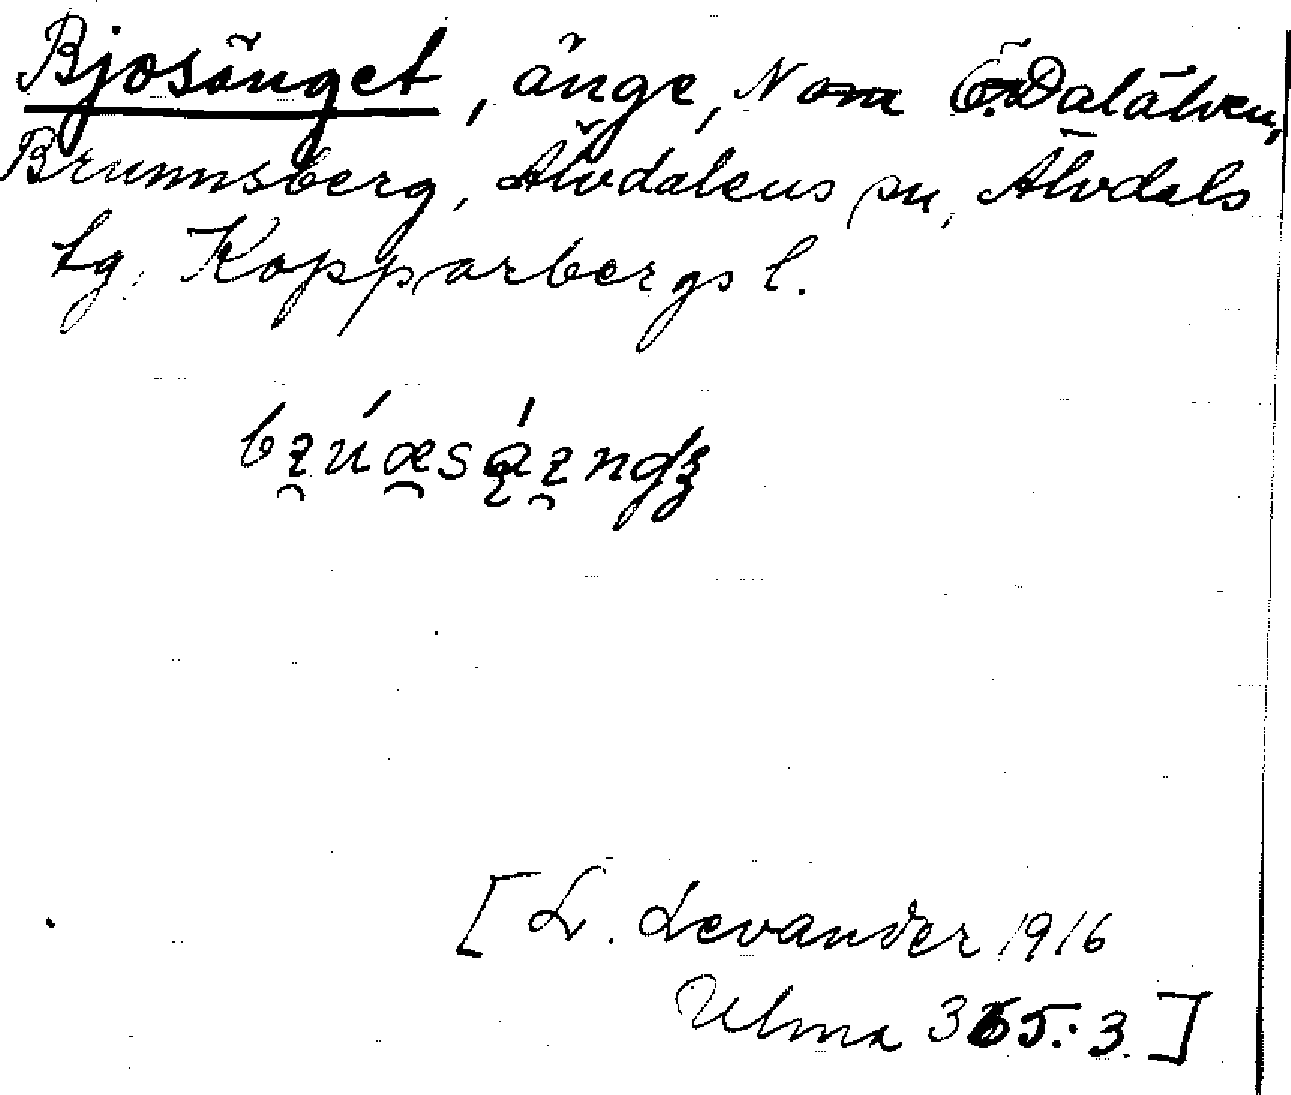 Bjosänget, änge, N om Ö. Dalälven,
Brunnsberg, Älvdalens sn, Älvdals
tg, Kopparbergs l.
[L. Levander 1916
Ulma 365:3.]